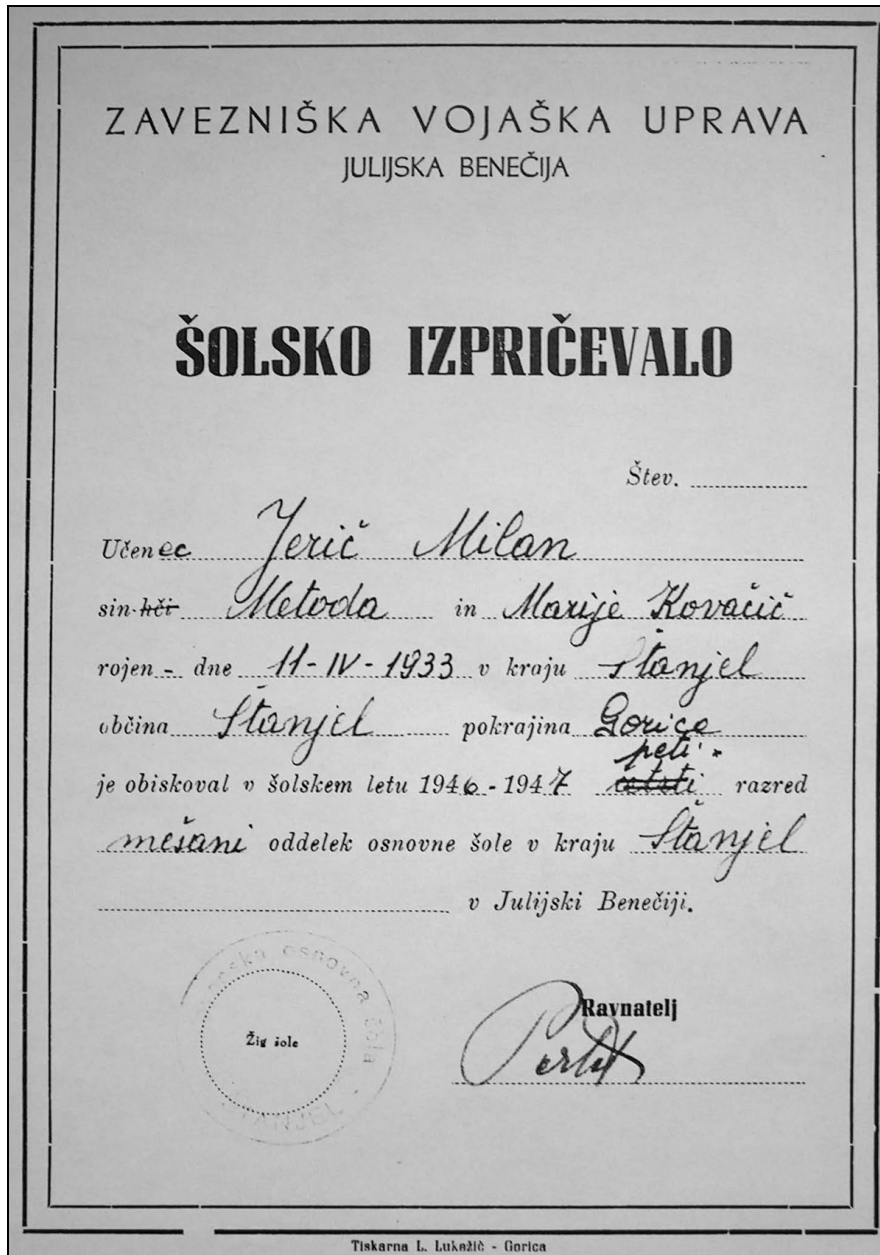 ZAVEZNIŠKA VOJAŠKA UPRAVA
JULIJSKA BENEČIJA
ŠOLSKO IZPRIČEVALO
Štev.
Učenec Jerič Milan
sin-hči Metoda in Marije Kovačič
rojen - dne 11-IV-1933 v kraju Štanjel
občina Štanjel pokrajina Gorica
peti
je obiskoval v šolskem letu 1946-1947 razred
mešani oddelek osnovne šole v kraju Štanjel
v Julijski Benečiji.
osnovna šola
Žig šole
Ravnatelj
Tiskarna L. Lukežič - Gorica